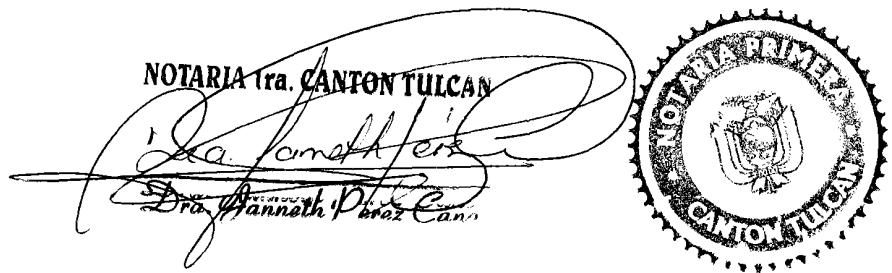 NOTARIA 1ra. CANTON TULCAN
Dra. Janneth Pérez
Dra. Janneth Pérez Cano
NOTARIA PRIMERA
CANTON TULCAN